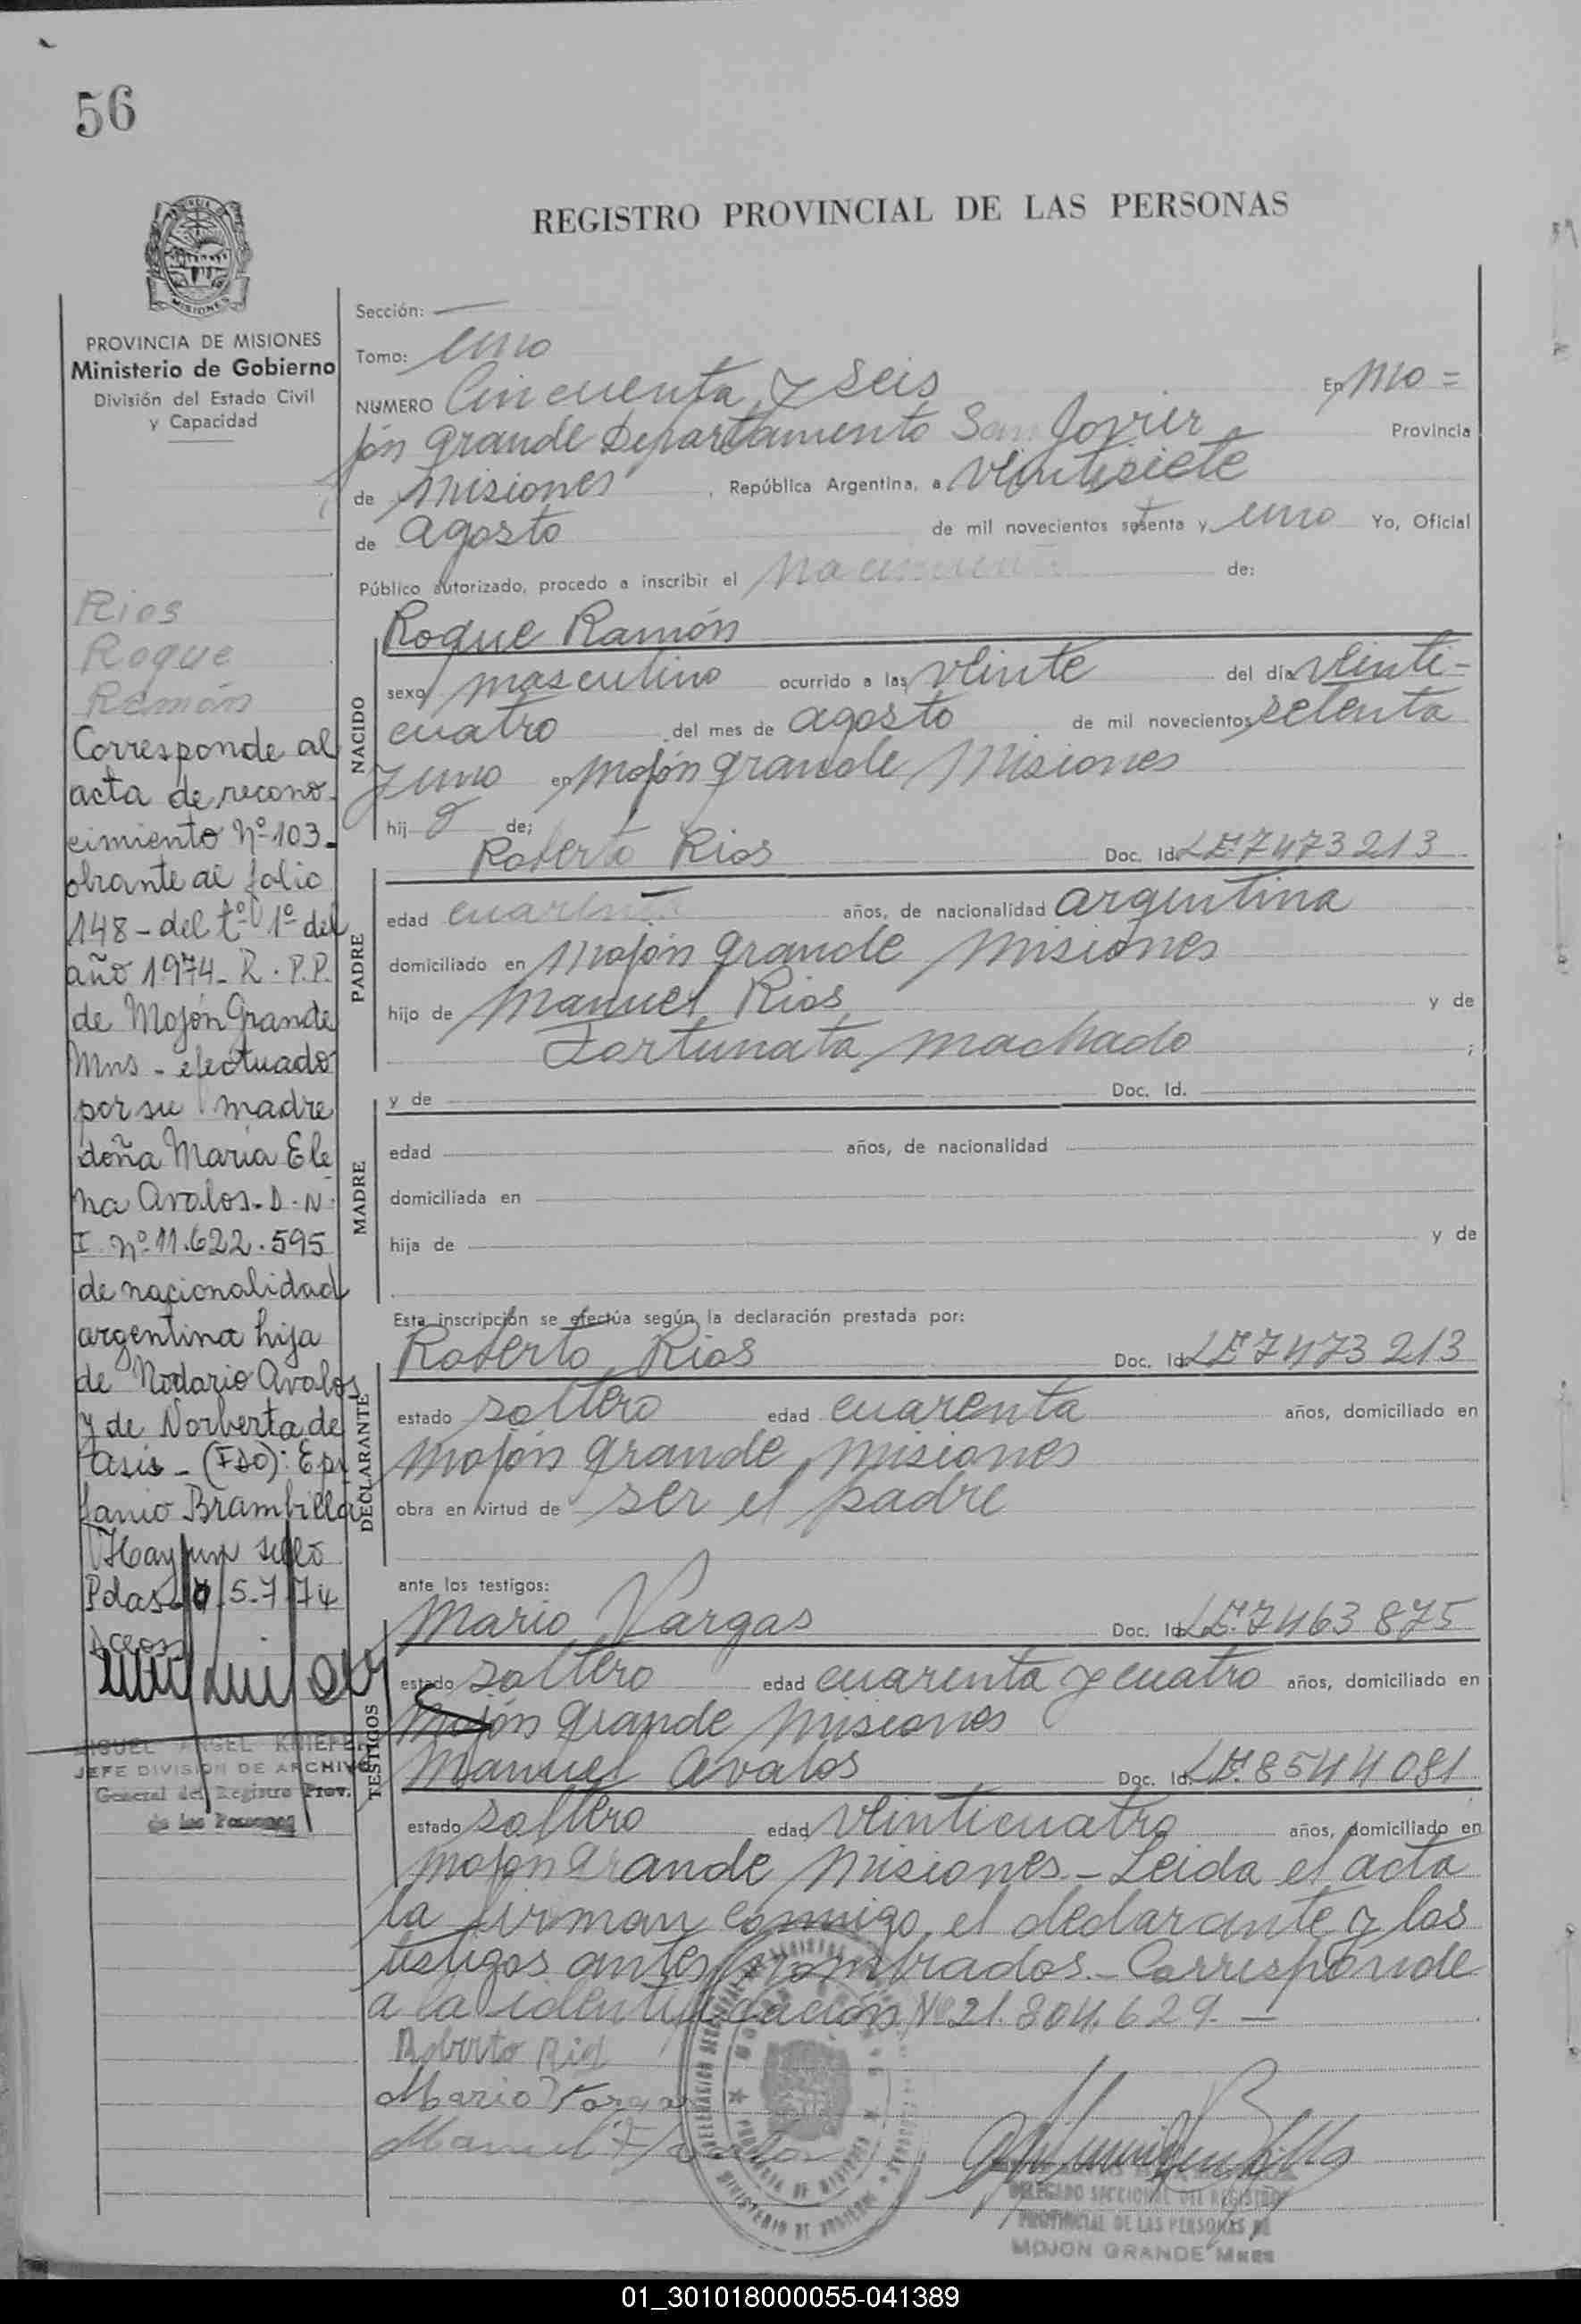 56
REGISTRO PROVINCIAL DE LAS PERSONAS
MISIONES
PROVINCIA DE MISIONES
Ministerio de Gobierno
División del Estado Civil
y Capacidad
Rios
Roque
Ramón
Corresponde al
acta de recono-
cimiento Nº 103.
obrante al folio
148 - del tº 1º del
año 1974 - R. P.P.
de Mojón Grande
Mns - efectuado
por su madre
doña Maria Ele
na Avalos - D.N.
I. Nº 11.622.595
de nacionalidad
argentina hija
de Nodario Avalos
y de Norberta de
Asis - (FDO): Epi
fanio Brambilla
Hay un sello
Pdas 5.7.74
MIGUEL ANGEL KNIEFE
JEFE DIVISION DE ARCHIVO
General del Registro Prov.
de las Personas
Sección: —
Tomo: uno
NUMERO Cincuenta y seis En Mo=
jón grande Departamento San Javier Provincia
de Misiones, República Argentina, a veintisiete
de agosto de mil novecientos setenta y uno Yo, Oficial
Público autorizado, procedo a inscribir el nacimiento de:
NACIDO
Roque Ramón
sexo masculino ocurrido a las veinte del día veinti-
cuatro del mes de agosto de mil novecientos setenta
y uno en Mojón grande Misiones
hijo de;
PADRE
Roberto Rios Doc. Id. LE 7473213
edad cuarenta años, de nacionalidad argentina
domiciliado en Mojón grande Misiones
hijo de Manuel Rios y de
Fortunata Machado ;
MADRE
y de Doc. Id.
edad años, de nacionalidad
domiciliada en
hija de y de
Esta inscripción se efectúa según la declaración prestada por:
DECLARANTE
Roberto Rios Doc. Id. LE 7473213
estado soltero edad cuarenta años, domiciliado en
Mojón grande Misiones
obra en virtud de ser el padre
ante los testigos:
TESTIGOS
Mario Vargas Doc. Id. LE. 7463875
estado soltero edad cuarenta y cuatro años, domiciliado en
Mojón grande Misiones
Manuel Avalos Doc. Id. LE. 8544081
estado soltero edad veinticuatro años, domiciliado en
Mojón grande Misiones - Leida el acta
la firman conmigo, el declarante y los
testigos antes nombrados. - Corresponde
a la identificación Nº 21.804.629. -
Roberto Rios
Mario Vargas
PROVINCIA DE MISIONES
MINISTERIO DE GOBIERNO
DELEGADO SECCIONAL DEL REGISTRO
PROVINCIAL DE LAS PERSONAS DE
MOJON GRANDE Mnes
01_301018000055-041389